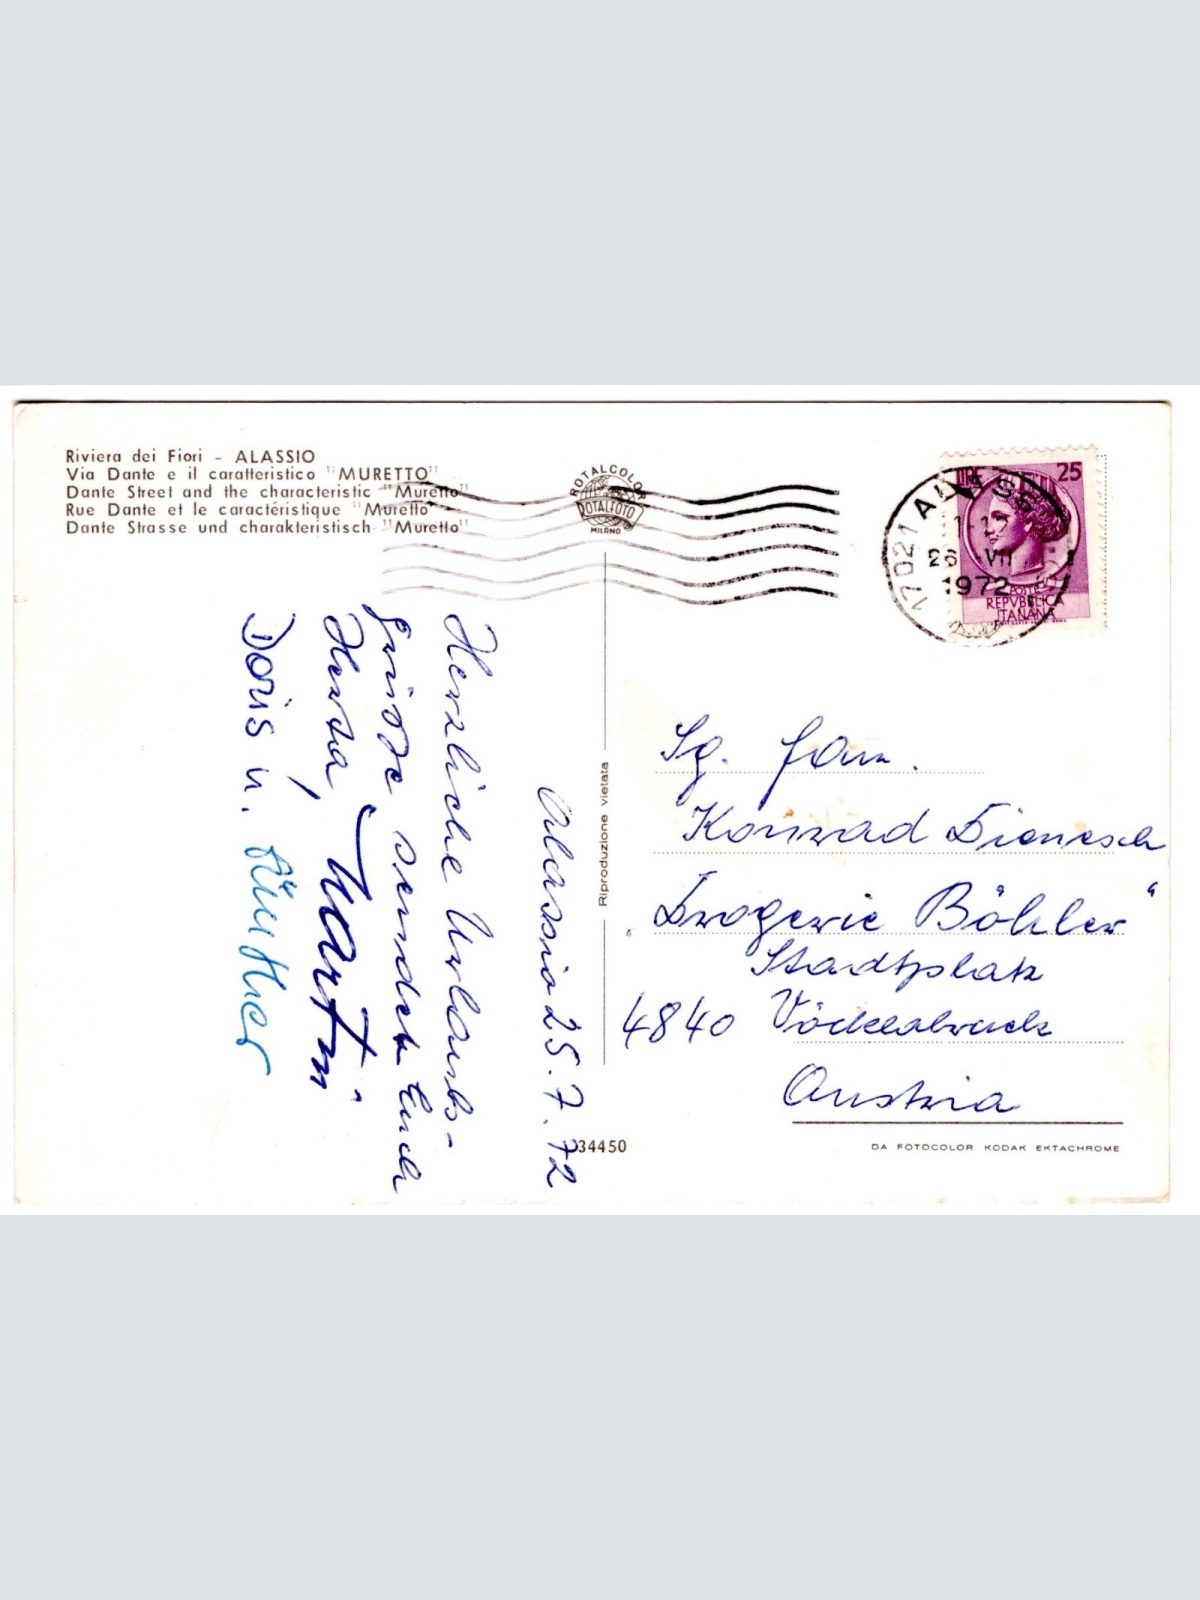 Riviera dei Fiori - ALASSIO
Via Dante e il caratteristico "MURETTO"
Dante Street and the characteristic "Muretto"
Rue Dante et le caractéristique "Muretto"
Dante Strasse und charakteristisch "Muretto"
ROTALCOLOR
ROTALFOTO
MILANO
LIRE 25
POSTE
REPVBBLICA
ITALIANA
17021 ALASSIO
26 VII
1972
Alassio 25.7.72
Herzliche Urlaubs-
grüsse sendet Euch
Herta, Martin
Doris u. Günther
Riproduzione vietata
Sg. Fam.
Konrad Dienesch
„Drogerie Böhler“
Stadtplatz
4840 Vöcklabruck
Austria
34450
DA FOTOCOLOR KODAK EKTACHROME